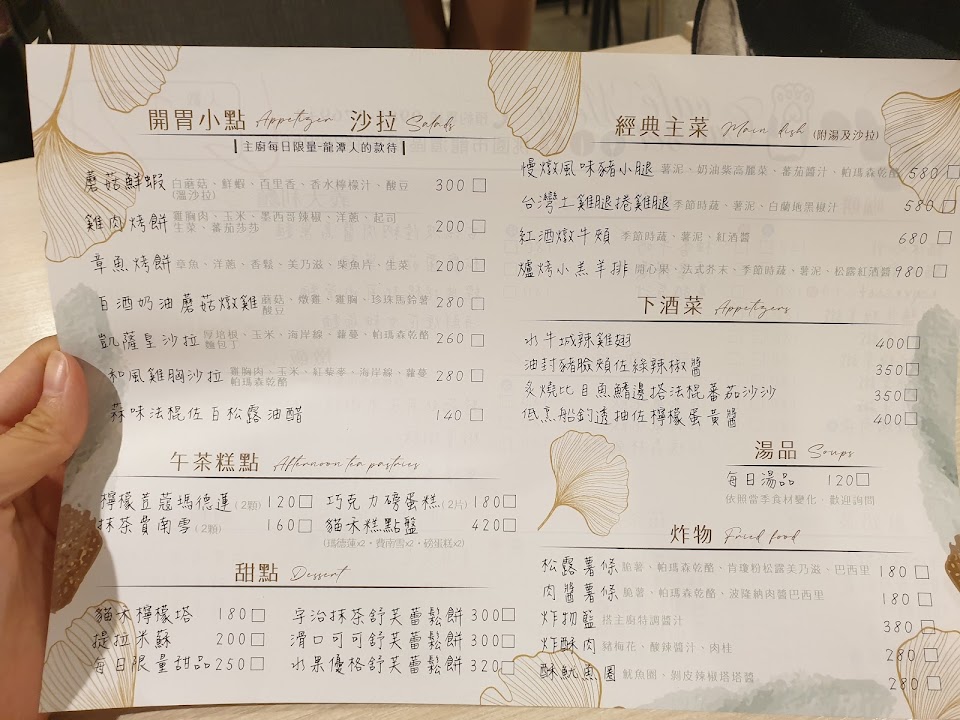 開胃小點 Appetizer 沙拉 Salads
主廚每日限量-龍潭人的款待
蘑菇鮮蝦 白蘑菇、鮮蝦、百里香、香水檸檬汁、酸豆 300
(溫沙拉)
雞肉烤餅 雞胸肉、玉米、墨西哥辣椒、洋蔥、起司 200
生菜、蕃茄莎莎
章魚烤餅 章魚、洋蔥、香鬆、美乃滋、柴魚片、生菜 200
白酒奶油蘑菇燉雞 蘑菇、燉雞、雞胸、珍珠馬鈴薯 280
酸豆
凱薩皇沙拉 厚培根、玉米、海岸線、蘿蔓、帕瑪森乾酪 260
麵包丁
和風雞胸沙拉 雞胸肉、玉米、紅藜麥、海岸線、蘿蔓 280
帕瑪森乾酪
蒜味法棍佐白松露油醋 140
午茶糕點 Afternoon tea pastries
檸檬荳蔻瑪德蓮 (2顆) 120
抹茶費南雪 (2顆) 160
巧克力磅蛋糕 (2片) 180
貓禾糕點盤 420
(瑪德蓮x2、費南雪x2、磅蛋糕x2)
甜點 Dessert
貓禾檸檬塔 180
提拉米蘇 200
每日限量甜品 250
宇治抹茶舒芙蕾鬆餅 300
滑口可可舒芙蕾鬆餅 300
水果優格舒芙蕾鬆餅 320
經典主菜 Main dish (附湯及沙拉)
慢燉風味豬小腿 薯泥、奶油紫高麗菜、蕃茄醬汁、帕瑪森乾酪 580
台灣土雞腿捲雞腿 季節時蔬、薯泥、白蘭地黑椒汁 580
紅酒燉牛頰 季節時蔬、薯泥、紅酒醬 680
爐烤小羔羊排 開心果、法式芥末、季節時蔬、薯泥、松露紅酒醬 980
下酒菜 Appetizers
水牛城辣雞翅 400
油封豬臉頰佐綠辣椒醬 350
炙燒比目魚鰭邊搭法棍蕃茄沙沙 350
低烹船釣透抽佐檸檬蛋黃醬 400
湯品 Soups
每日湯品 120
依照當季食材變化、歡迎詢問
炸物 Fried food
松露薯條 脆薯、帕瑪森乾酪、肯瓊粉松露美乃滋、巴西里 180
肉醬薯條 脆薯、帕瑪森乾酪、波隆納肉醬巴西里 180
炸物籃 搭主廚特調醬汁 380
炸酥肉 豬梅花、酸辣醬汁、肉桂 280
酥魷魚圈 魷魚圈、剝皮辣椒塔塔醬 280